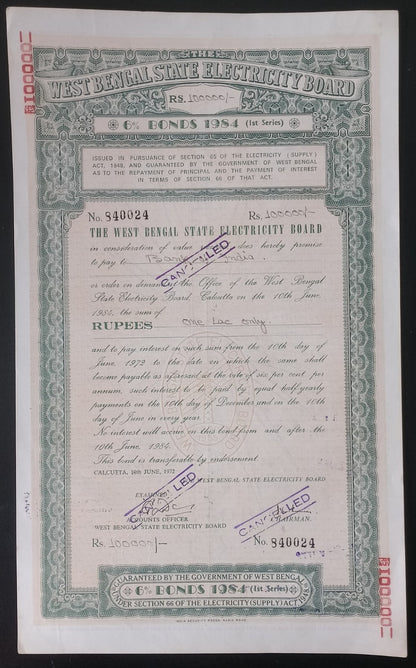 THE
WEST BENGAL STATE ELECTRICITY BOARD
RS. 100000/-
6% BONDS 1984 (1st Series)
ISSUED IN PURSUANCE OF SECTION 65 OF THE ELECTRICITY (SUPPLY)
ACT, 1948, AND GUARANTEED BY THE GOVERNMENT OF WEST BENGAL
AS TO THE REPAYMENT OF PRINCIPAL AND THE PAYMENT OF INTEREST
IN TERMS OF SECTION 66 OF THAT ACT.
No. 840024 Rs. 100000/-
THE WEST BENGAL STATE ELECTRICITY BOARD
in consideration of value does hereby promise
to pay to Bank of India.
CANCELLED
or order on demand at the Office of the West Bengal
State Electricity Board, Calcutta on the 10th June,
1984, the sum of
RUPEES One Lac only
and to pay interest on such sum from the 10th day of
June 1972 to the date on which the same shall
become payable as aforesaid at the rate of six per cent. per
annum, such interest to be paid by equal half-yearly
payments on the 10th day of December and on the 10th
day of June in every year.
No interest will accrue on this bond from and after the
10th June, 1984.
This bond is transferable by endorsement.
CALCUTTA, 10th JUNE, 1972
WEST BENGAL STATE ELECTRICITY BOARD
EXAMINED
CANCELLED
CANCELLED
ACCOUNTS OFFICER
CHAIRMAN.
WEST BENGAL STATE ELECTRICITY BOARD
Rs. 100000/- No. 840024
GUARANTEED BY THE GOVERNMENT OF WEST BENGAL
6% BONDS 1984 (1st Series)
UNDER SECTION 66 OF THE ELECTRICITY (SUPPLY) ACT,
INDIA SECURITY PRESS, NASIK ROAD